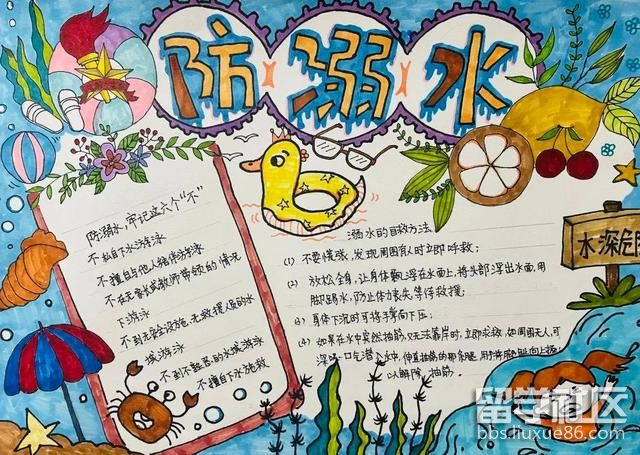 防溺水
防溺水，牢记这六个"不"
不私自下水游泳
不擅自与他人结伴游泳
不在无家长或教师带领的情况
下游泳
不到无安全设施、无救援人员的水
域游泳
不到不熟悉的水域游泳
不擅自下水施救
溺水的自救方法
(1) 不要慌张，发现周围有人时立即呼救；
(2) 放松全身，让身体飘浮在水面上，将头部浮出水面，用
脚踢水，防止体力丧失，等待救援
(3) 身体下沉时可将手掌向下压；
(4) 如果在水中突然抽筋，又无法靠岸时，立即求救，如周围无人，可
深吸一口气潜入水中，伸直抽筋的那条腿，用手将脚趾向上扳，
以解除抽筋。
水深危险
留学社区
bbs.liuxue86.com